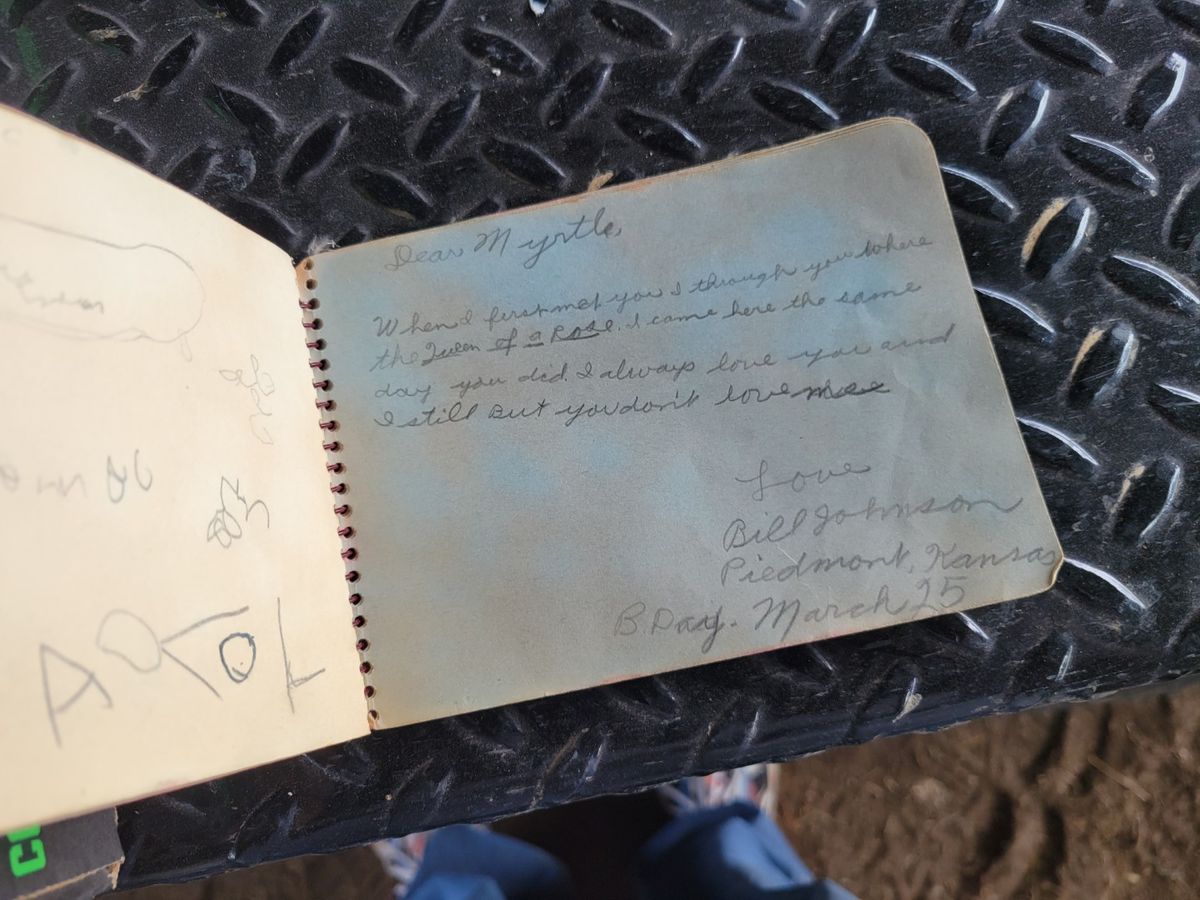 Dear Myrtle,
When I first met you I through you where
the Queen of a Rose. I came here the same
day you did. I always love you and
I still But you don't love me
Love
Bill Johnson
Piedmont, Kansas
B.Day. March 25